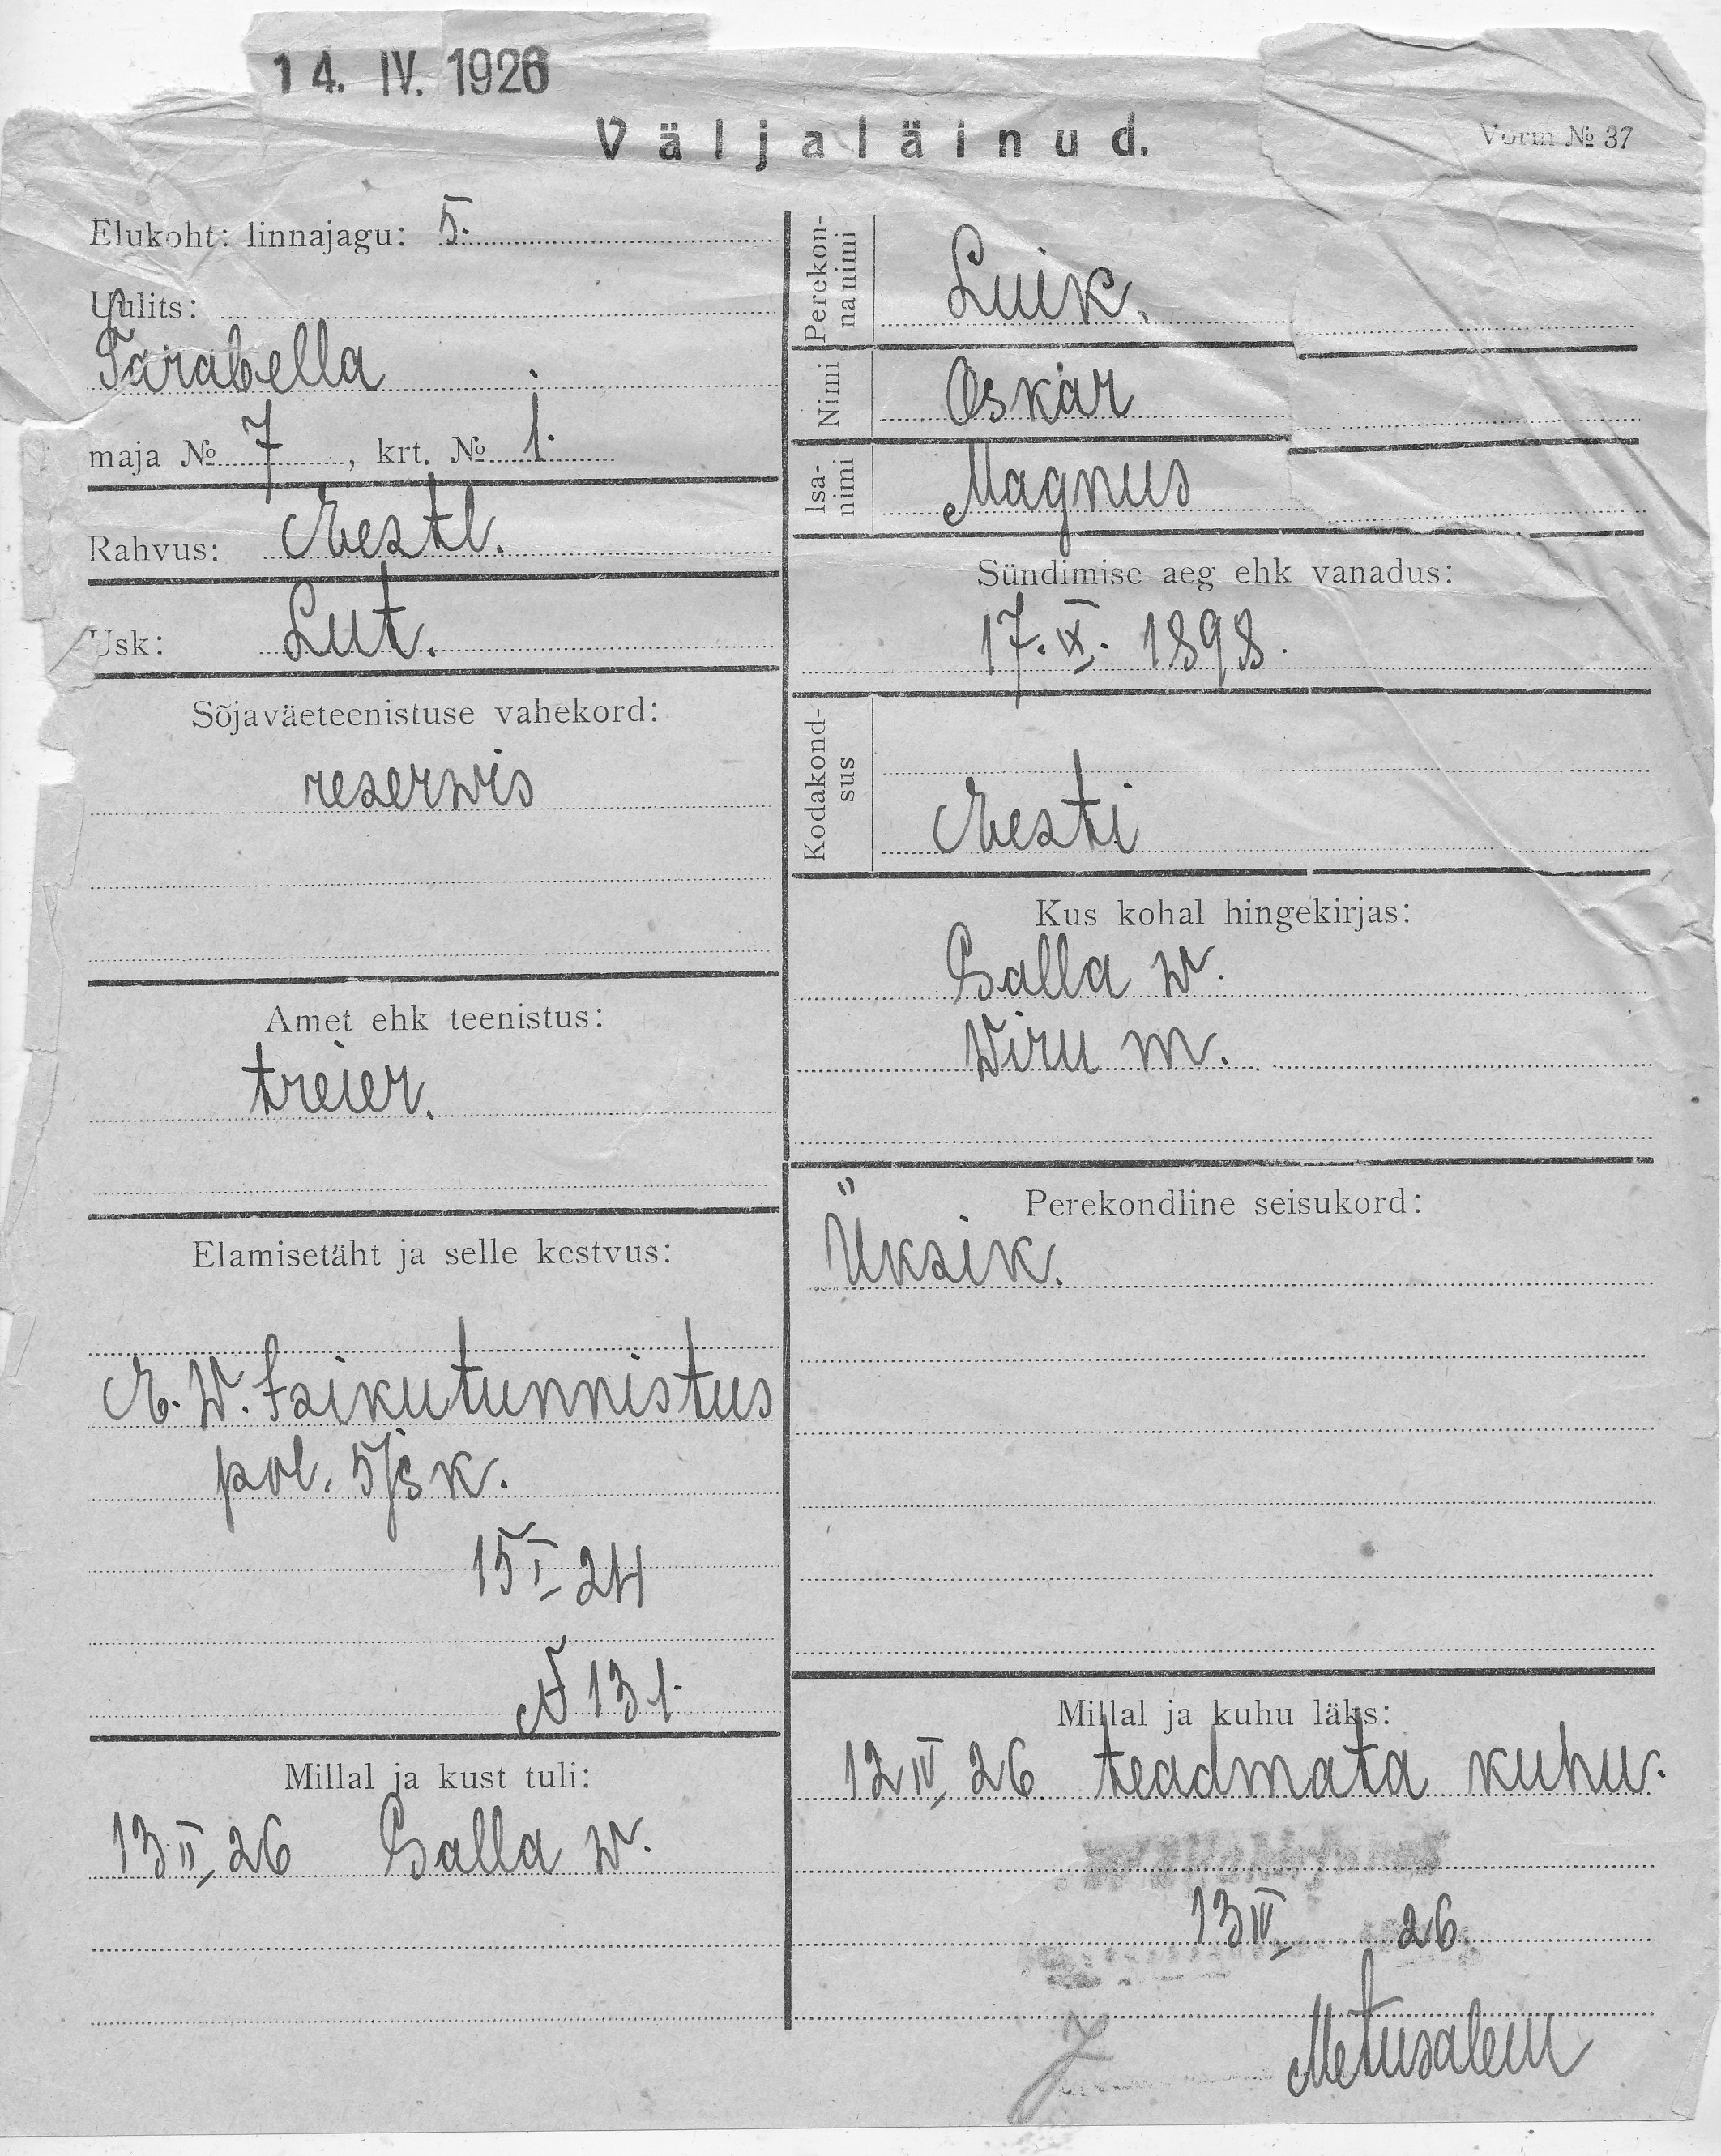 14. IV. 1926
Väljaläinud.
Vorm № 37
Elukoht: linnajagu: 5.
Uulits:
Tarabella
maja № 7, krt. № 1.
Rahvus: Eestl.
Usk: Lut.
Sõjaväeteenistuse vahekord:
reserwis
Amet ehk teenistus:
treier.
Elamisetäht ja selle kestvus:
E. W. Isikutunnistus
pol. 5/jsk.
15 I 24
N 131.
Millal ja kust tuli:
13 II 26 Salla w.
Perekonnanimi
Luik.
Nimi
Oskar
Isanimi
Magnus
Sündimise aeg ehk vanadus:
17. IX. 1898.
Kodakondsus
Eesti
Kus kohal hingekirjas:
Salla w.
Wiru m.
Perekondline seisukord:
Üksik.
Millal ja kuhu läks:
12 IV 26 teadmata kuhu.
13 IV 26
Metusalem